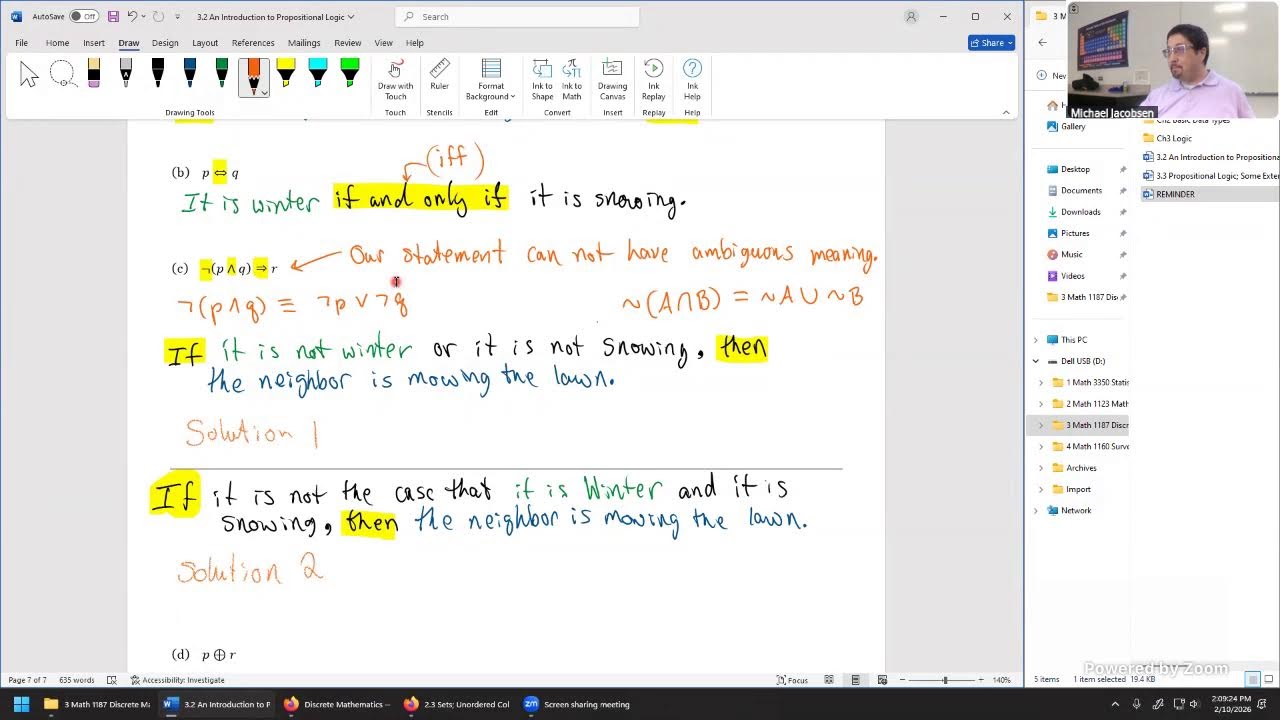 AutoSave Off 3.2 An Introduction to Propositional Logic Search
File Home Insert Draw Design Layout References Mailings Review View Help Share
Draw with Touch Ruler Format Background Ink to Shape Ink to Math Drawing Canvas Ink Replay Ink Help
Drawing Tools Touch Stencils Edit Convert Insert Replay Help
Michael Jacobsen
(iff)
(b) p ⇔ q
It is winter if and only if it is snowing.
(c) ¬(p ∧ q) ⇒ r ← Our statement can not have ambiguous meaning.
¬(p∧q) ≡ ¬p ∨ ¬q ~(A∩B) = ~A∪ ~B
If it is not winter or it is not snowing, then
the neighbor is mowing the lawn.
Solution 1
If it is not the case that it is Winter and it is
snowing, then the neighbor is mowing the lawn.
Solution 2
(d) p ⊕ r
Page 7 of 7 635 words Accessibility: Investigate Focus 140%
Gallery
Desktop
Documents
Downloads
Pictures
Music
Videos
3 Math 1187 Dis
This PC
Dell USB (D:)
1 Math 3350 Statis
2 Math 1123 Math
3 Math 1187 Discr
4 Math 1160 Surve
Archives
Import
Network
Ch2 Basic Data Types
Ch3 Logic
3.2 An Introduction to Propositiona
3.3 Propositional Logic; Some Exter
REMINDER
5 items 1 item selected 19.4 KB
Powered by Zoom
3 Math 1187 Discrete Ma 3.2 An Introduction to P Discrete Mathematics — 2.3 Sets; Unordered Col Screen sharing meeting
2:09:24 PM
2/10/2026